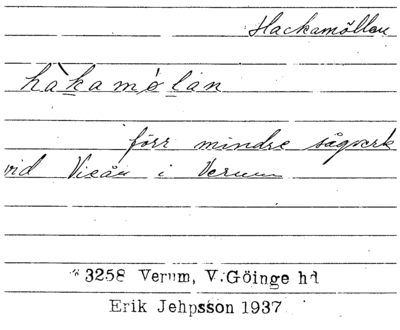 Hackamöllan
hàkamølan
förr mindre sågverk
vid Vieån i Verum
3258 Verum, V. Göinge hd
Erik Jehpsson 1937